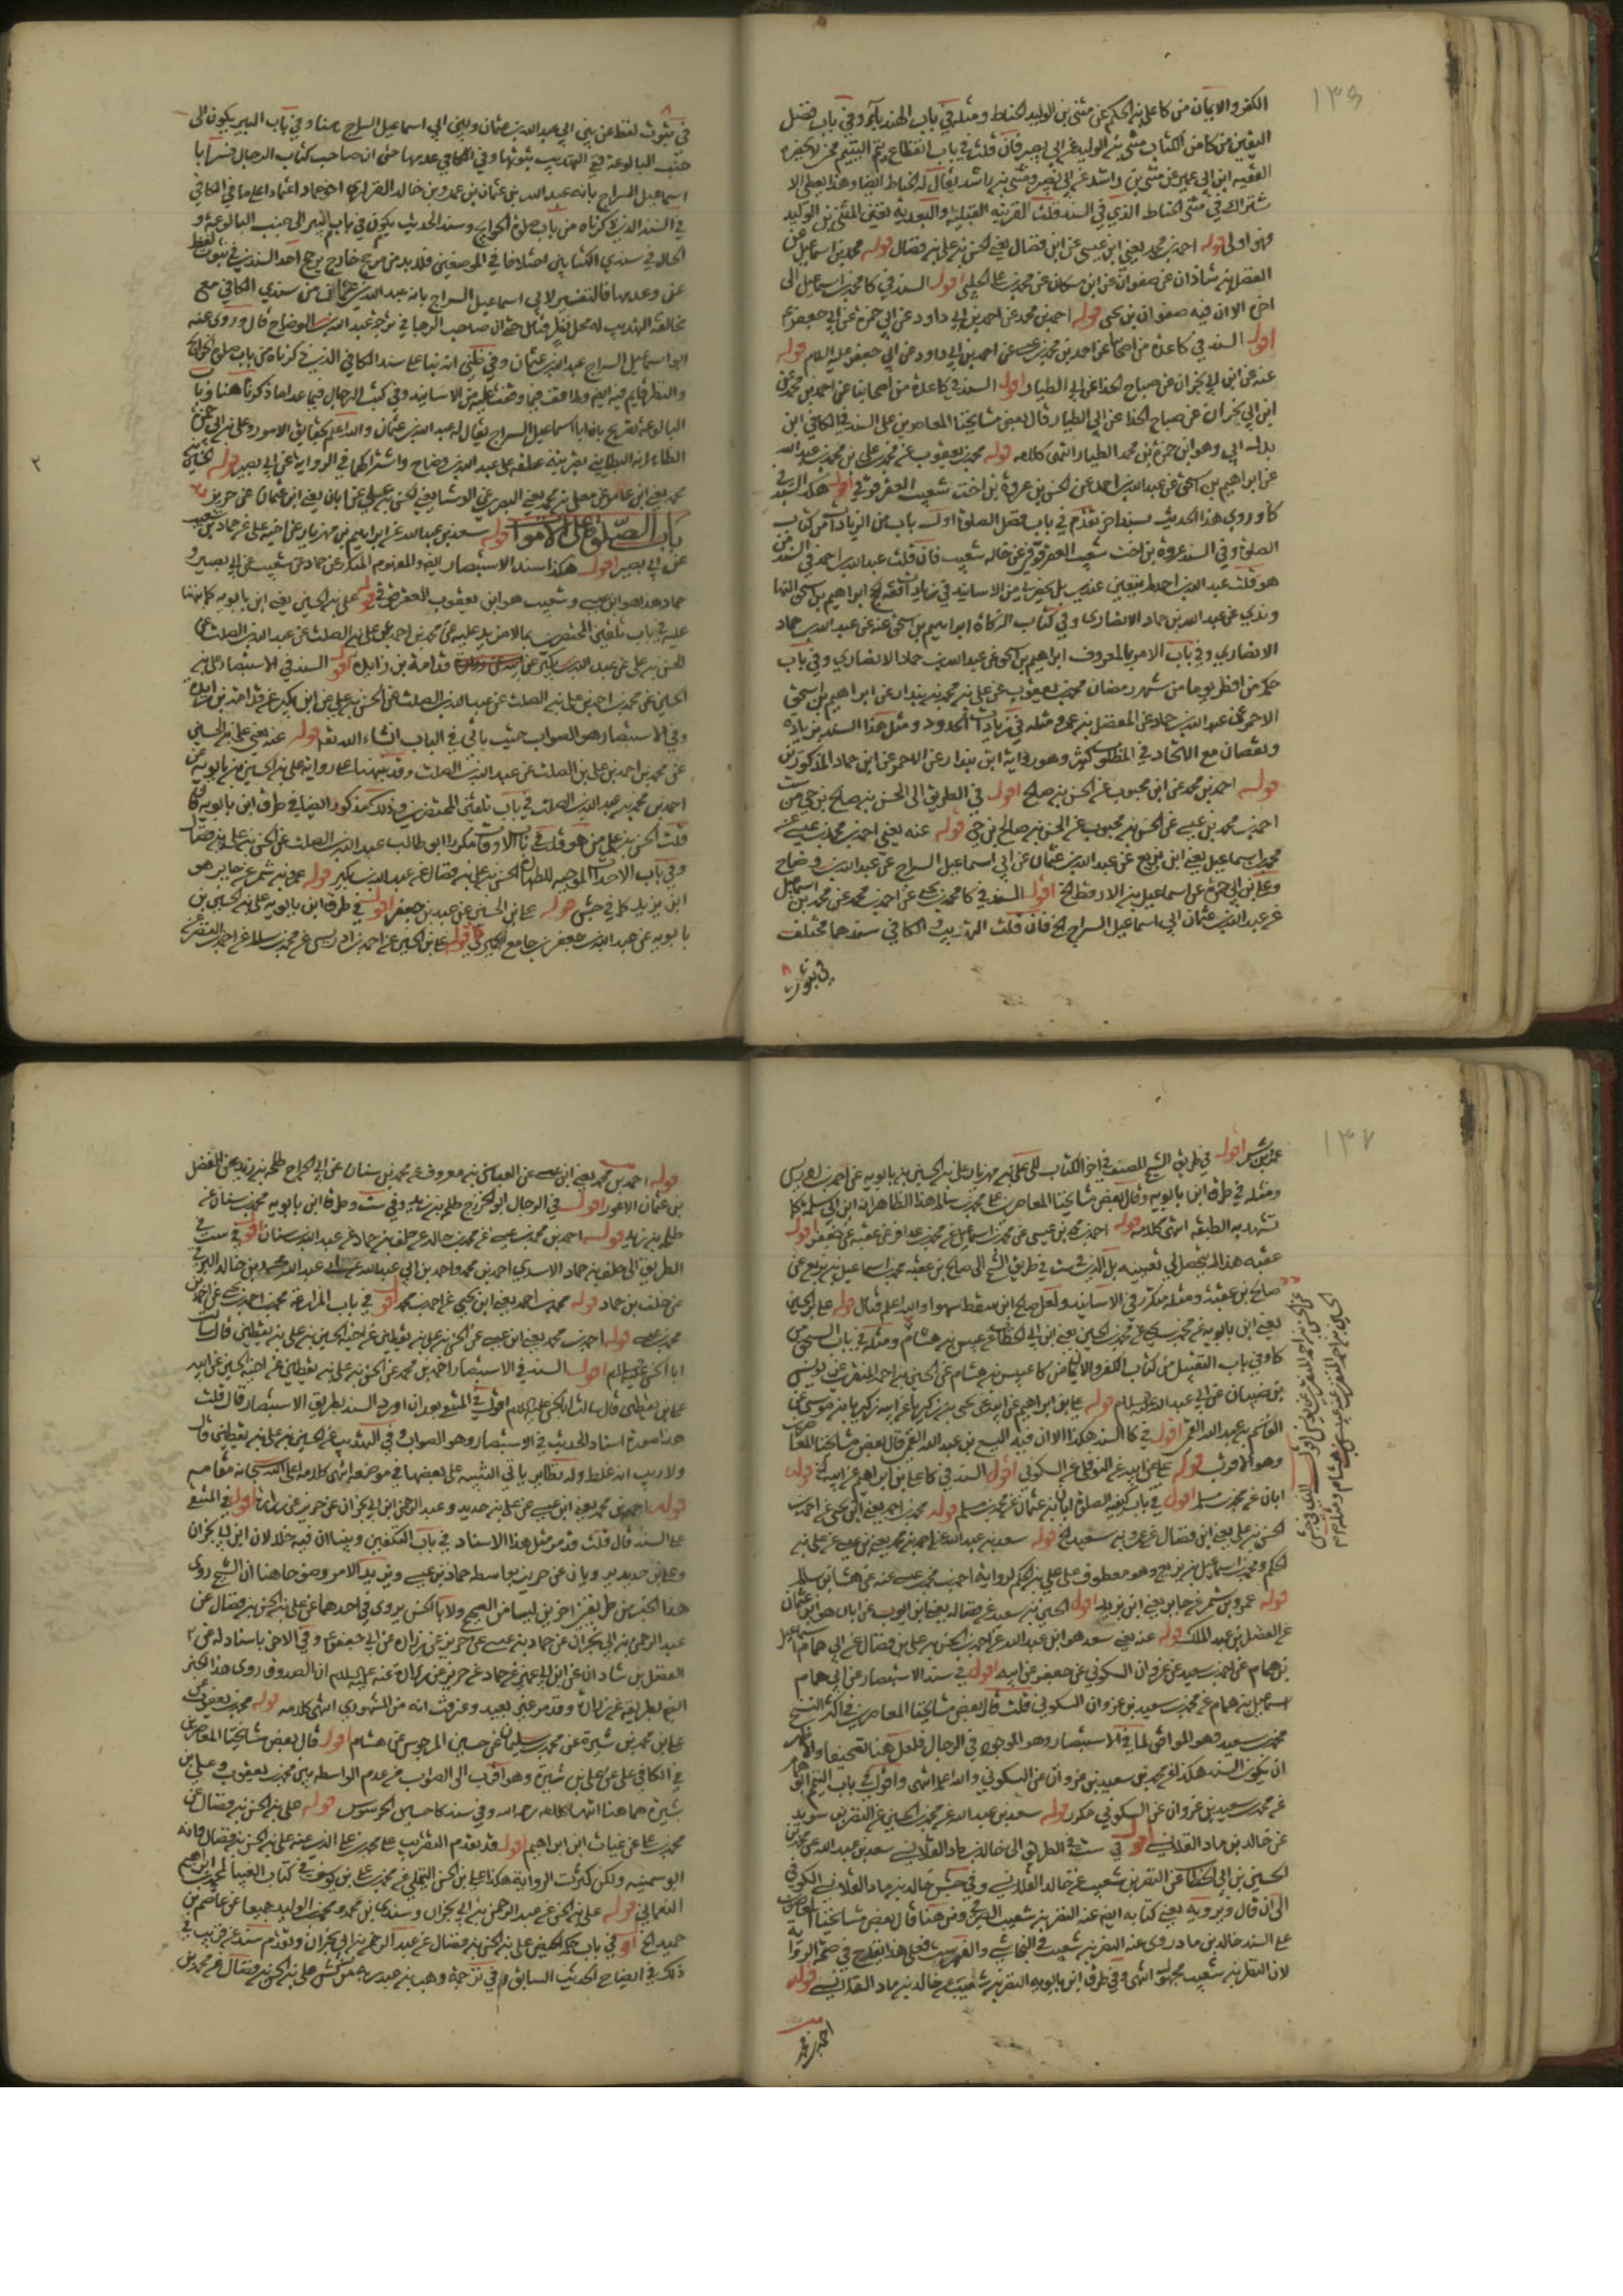 ١٣٦
الكفر والايمان من كا على بن الحكم عن مثنى بن الوليد الحناط ومثله في باب الهندباء وفي باب فضل
اليقين من كا من الكتاب مثنى بن الوليد عن ابي بصير فان قلت في باب انقطاع يتم اليتيم من لا يحضره
الفقيه ابن ابي عمير عن مثنى بن راشد عن ابي بصير ومثنى بن راشد يقال له الحناط ايضا وهذا يعطى الا
شتراك في مثنى الحناط الذي في السند قلت القرينه القبلية والبعدية تعين المثنى بن الوليد
وهو اولى قوله احمد بن محمد يعني ابن عيسى عن ابن فضال يعني الحسن بن علي بن فضال قوله محمد بن اسماعيل عن
الفضل بن شاذان عن صفوان عن ابن مسكان عن محمد بن علي الحلبي اقول السند في كا محمد بن اسماعيل الى
اخره الا ان فيه صفوان بن يحيى قوله احمد بن محمد عن احمد بن ابي داود عن ابي حمزة عن ابي جعفر ع
اقول السند في كا عدة من اصحابنا عن احمد بن محمد بن عيسى عن احمد بن ابي داود عن ابي جعفر عليه السلم قوله
عنه عن ابن ابي نجران عن صباح الحذا عن ابي الطيار اقول السند في كا عدة من اصحابنا عن احمد بن محمد عن
ابن ابي نجران عن صباح الحذا عن ابي الطيار قال بعض مشايخنا المعاصرين على السند في الكافي ابن
بدل ابي وهو ابن حمزة بن محمد الطيار انتهى كلامه قوله محمد بن يعقوب عن محمد بن علي بن محمد بن عبد الله
عن ابراهيم بن اسحق عن عبد الله بن احمد عن الحسن بن عروة بن اخت شعيب العقرقوفي اقول هكذا السند في
كا وروى هذا الحديث بسند اخر تقدم في باب فضل الصلوة اول باب من الزيادات من كتاب
الصلوة وفي السند عروة بن اخت شعيب العقرقوفي عن خاله شعيب فان قلت عبد الله بن احمد في السند من
هو قلت عبد الله بن احمد
وندي عن عبد الله بن حماد الانصارى وفي كتاب الزكاة ابراهيم بن اسحق عنه عن عبد الله بن حماد
الانصاري وفي باب الامر بالمعروف ابراهيم بن اسحق عن عبد الله بن حماد الانصاري وفي باب
حكم من افطر يوما من شهر رمضان محمد بن يعقوب عن علي بن محمد بن بندار عن ابراهيم بن اسحق
الاحمر عن عبد الله بن حماد عن المفضل بن عمر ومثله في زيادات الحدود ومثل هذا السند بزيادة
ونقصان مع الاتحاد في المطلوب كثير وهو رواية ابن بندار عن الاحمر عن ابن حماد المذكورين
قوله احمد بن محمد عن ابن محبوب عن الحسن بن صالح اقول في الطريق الى الحسن بن صالح بن حي من ست
احمد بن محمد بن عيسى عن الحسن بن محبوب عن الحسن بن صالح بن حي قوله عنه يعني احمد بن محمد بن عيسى عن
محمد بن اسماعيل يعني ابن بزيع عن عبد الله بن عثمان عن ابي اسماعيل السراج عن عبد الله بن وضاح
وعلي بن ابي حمزة عن اسماعيل بن الارقط الخ اقول السند في كا محمد بن يحيى عن احمد بن محمد عن محمد بن اسماعيل
عن عبد الله بن عثمان ابي اسماعيل السراج الخ فان قلت التهذيب والكافي سندهما مختلف
في ثبوت
في ثبوت لفظ عن بين ابي عبد الله بن عثمان وبين ابي اسماعيل السراج هنا وفي باب البير يكون الى
جنب البالوعة في التهذيب بثبوتها وفي الكافي عدمها حتى ان صاحب كتاب الرجال فسر ابا
اسماعيل السراج بانه عبد الله بن عثمان بن عمرو بن خالد الفزاري اخو حماد اعتمادا على ما في الكافي
في السند الذي ذكرناه من باب صلوة الحوايج وسند الحديث يكون في باب البير الى جنب البالوعة و
الحال في سندي الكتابين اختلافا في الموضعين فلا بد من مرجح خارج يرجح احد السندين في ثبوت لفظ
عن وعدمها فالتفسير لابي اسماعيل السراج بانه عبد الله بن عثمان من سندي الكافي مع
مخالفة التهذيب له محل نظر فتامل حتى ان صاحب الرجال في ترجمة عبد الله بن الوضاح قال وروى عنه
ابو اسماعيل السراج عبد الله بن عثمان وفي ظني انه بناء على سند الكافي الذي ذكرناه من باب صلوة الحوايج
والنظر قايم فيه ايضا وما اقف فيما وقفت عليه من الاسانيد وفي كتب الرجال فيما عدا ما ذكرنا هنا وباب
البالوعة تصريح بان ابا اسماعيل السراج يقال له عبد الله بن عثمان والله اعلم بحقايق الامور وعلي بن ابي حمزة
الظاهر انه البطايني بقرينة عطفه على عبد الله بن وضاح واشتراكهما في الرواية عن ابي بصير قوله الحسين بن
محمد يعني ابن عامر عن معلى بن محمد يعني البصري عن الوشا يعني الحسن بن علي عن ابان يعني ابن عثمان عن حريز
باب الصلوة على الاموات قوله سعد بن عبد الله عن ابراهيم بن مهزيار عن اخيه علي عن حماد بن شعيب
عن ابي بصير اقول هكذا سند الاستبصار ايضا والمفهوم المتكرر عن حماد عن شعيب عن ابي بصير و
حماد هذا هو ابن عيسى وشعيب هو ابن يعقوب العقرقوفي قوله علي بن الحسين يعني ابن بابويه كما نبهنا
عليه في باب تلقين المحتضرين بما لا مزيد عليه عن محمد بن احمد بن علي بن الصلت عن عبد الله بن الصلت عن
الحسن بن علي عن عبد الله بن بكير عن قدامة بن زايدة اقول السند في الاستبصار علي بن
الحسين عن محمد بن احمد بن علي بن الصلت عن عبد الله بن الصلت عن الحسن بن علي عن ابن بكير عن قدامة بن زايدة
وفي الاستبصار هو الصواب حيث ياتي في الباب انشاء الله تع قوله عنه يعني علي بن الحسين
عن محمد بن احمد بن علي بن الصلت عن عبد الله بن الصلت وقد نبهنا على رواية علي بن الحسين بن بابويه عن
احمد بن محمد بن عبد الله بن الصلت في باب تلقين المحتضرين وذلك مذكور ايضا في طرق ابن بابويه فان
قلت الحسن بن علي من هو قلت
وفي باب الاحداث الموجبه للطهارة الحسن بن علي بن فضال عن عبد الله بن بكير قوله عمرو بن شمر عن جابر هو
ابن يزيد كما في جش قوله علي بن الحسين عن عبد الله بن جعفر اقول في طرق ابن بابويه علي بن الحسين بن
بابويه عن عبد الله بن جعفر بن جامع الحميري قوله علي بن الحسين عن احمد بن ادريس عن محمد بن سالم عن احمد بن النضر عن
٢
١٣٧
عمرو بن شمر اقول في طريق الشيخ المصنف في اخر الكتاب الى علي بن مهزيار علي بن الحسين بن بابويه عن احمد بن ادريس
ومثله في طرق ابن بابويه وقال بعض مشايخنا المعاصرين على محمد بن سالم هذا الظاهر انه ابن ابي سلمة كما
تشهد به الطبقة انتهى كلامه قوله احمد بن محمد بن عيسى عن محمد بن اسماعيل عن محمد بن عذافر عن عقبة عن جعفر اقول
عقبه هذا لم يتحصل لي تعيينه بل الذي ثبت في طريق الشيخ الى صالح بن عقبة محمد بن اسماعيل بن بزيع عن
صالح بن عقبة ومثله متكرر في الاسانيد ولعل صالح ابن سقط سهوا والله اعلم فتامل قوله علي بن الحسين
يعني ابن بابويه عن محمد بن يحيى عن محمد بن الحسين يعني ابن ابي الخطاب عن عبيس بن هشام ومثله في باب السحق من
كا وفي باب التقبيل من كتاب الكفر والايمان من كا عبيس بن هشام عن الحسين بن احمد المنقري عن يونس
بن ظبيان عن ابي عبد الله عليه السلم قوله علي بن ابراهيم عن ابيه عن يحيى بن زكريا عن ابيه زكريا بن موسى عن
القاسم بن عبد الله القمي اقول في كا السند هكذا الا ان فيه اليسع بن عبد الله القمي قال بعض مشايخنا المعاصرين
وهو الاقرب قوله علي عن ابيه عن النوفلي عن السكوني اقول السند في كا علي بن ابراهيم عن ابيه الخ قوله
ابان عن محمد بن مسلم اقول في باب كيفية الصلوة ابان بن عثمان عن محمد بن مسلم قوله محمد بن احمد يعني ابن يحيى عن احمد بن
الحسن بن علي يعني ابن فضال عن عمرو بن سعيد الخ قوله سعد بن عبد الله عن احمد بن محمد يعني بن عيسى عن علي بن
الحكم ومحمد بن اسماعيل بن بزيع وهو معطوف على علي بن الحكم لرواية احمد بن محمد بن عيسى عنه عن هشام بن سالم
قوله عمرو بن شمر عن جابر يعني ابن يزيد اقول الحسين بن سعيد عن فضالة يعني ابن ايوب عن ابان هو ابن عثمان
عن الفضل بن عبد الملك قوله عنه يعني سعد هو ابن عبد الله عن احمد بن الحسن بن علي بن فضال عن ابي همام اسماعيل
بن همام عن محمد بن سعيد عن غزوان السكوني عن جعفر عن ابيه اقول في سند الاستبصار عن ابي همام
اسماعيل بن همام عن محمد بن سعيد بن غزوان السكوني قلت قال بعض مشايخنا المعاصرين في اكثر النسخ
محمد بن سعيد وهو الموافق لما في الاستبصار وهو الموجود في الرجال فلعل هنا تصحيفا والظاهر
ان يكون السند هكذا عن محمد بن سعيد بن غزوان عن السكوني والله اعلم انتهى واقول في باب التيمم
عن محمد بن سعيد بن غزوان عن السكوني قوله سعد بن عبد الله عن محمد بن الحسين عن النضر بن سويد
عن خالد بن ماد القلانسي اقول في ست في الطريق الى خالد بن ماد القلانسي سعد بن عبد الله عن محمد بن
الحسين بن ابي الخطاب عن النضر بن شعيب عن خالد القلانسي وفي جش خالد بن ماد القلانسي الكوفي
الى ان قال ويرويه يعني كتابه ايضا عنه النضر بن شعيب ومن هنا قال بعض مشايخنا المعاصرين
على السند خالد بن ماد روى عنه النضر بن شعيب في النجاشي والفهرست فعلى هذا يقدح في صحة الرواية
لان النضر بن شعيب مجهول انتهى وفي طرق ابن بابويه النضر بن شعيب عن خالد بن ماد القلانسي قوله
احمد بن محمد
قوله احمد بن محمد يعني ابن عيسى عن العباس بن معروف عن محمد بن سنان عن ابي الجراح طلحة بن زيد عن الفضل
بن عثمان الاعور اقول في الرجال ابو الخزرج طلحة بن زيد وفي ست وطرق ابن بابويه محمد بن سنان عن
طلحة بن زيد قوله احمد بن محمد بن عيسى عن محمد بن خالد عن خلف بن حماد عن عبد الله بن سنان اقول في ست في
الطريق الى خلف بن حماد الاسدي احمد بن محمد واحمد بن ابي عبد الله عن ابي عبد الله محمد بن خالد البرقي
عن خلف بن حماد قوله محمد بن احمد يعني ابن يحيى عن احمد بن محمد اقول في باب المزارعة محمد بن احمد بن يحيى عن احمد بن
محمد بن عيسى قوله احمد بن محمد يعني ابن عيسى عن الحسن بن علي بن يقطين عن اخيه الحسين بن علي بن يقطين قال سالت
ابا الحسن عليه السلم اقول السند في الاستبصار احمد بن محمد عن الحسن بن علي بن يقطين عن اخيه الحسين عن ابيه
علي بن يقطين قال سالت ابا الحسن عليه السلام اقول في المنتقى بعد ان اورد السند بطريق الاستبصار قال قلت
هذا صورة اسناد الحديث في الاستبصار وهو الصواب وفي التهذيب عن الحسين بن علي بن يقطين قال
ولا ريب انه غلط وله نظاير ياتي التنبيه على بعضها في موضعه انتهى كلامه اعلى الله سبحانه مقامه
قوله احمد بن محمد يعني ابن عيسى عن علي بن حديد وعبد الرحمن بن ابي نجران عن حريز عن زرارة اقول في المنتقى
على السند قال قلت قد مر مثل هذا الاسناد في باب التكفين وبينا ان فيه خللا لان ابن ابي نجران
وعلي بن حديد يرويان عن حريز بواسطة حماد بن عيسى ويزيد الامر وضوحا هنا ان الشيخ روى
هذا الخبر من طريقين اخرين ليسا من الصحيح ولا بالحسن يروى في احدهما عن علي بن الحسن بن فضال عن
عبد الرحمن بن ابي نجران عن حماد بن عيسى عن حريز عن زرارة عن ابي جعفر ع وفي الاخر باسناده عن
الفضل بن شاذان عن ابن ابي عمير عن حماد عن حريز عن زرارة عنه عليه السلام ان الصدوق روى هذا الخبر
ايضا بطريقه عن زرارة وقد مر غير بعيد وعرفت انه من المشهوري انتهى كلامه قوله محمد بن يعقوب عن
علي بن محمد بن شيرة عن محمد بن سليمان عن حسين المرجوس عن هشام اقول قال بعض مشايخنا المعاصرين
في الكافي علي عن علي بن شيرة وهو اقرب الى الصواب مع عدم الواسطة بين محمد بن يعقوب وعلي بن
شيرة هما هنا انتهى كلامه رحمه الله وفي سند كا حسين الحرسوس قوله علي بن الحسن بن فضال عن
محمد بن علي عن غياث ابن ابراهيم اقول قد تقدم التقريب على محمد بن علي الذي عنه علي بن الحسن بن فضال وانه
ابو سمينه ولكن كثرت الرواية هكذا علي بن الحسن التيملي عن محمد بن علي بن يوسف في كتاب الغيبة لمحمد بن ابراهيم
النعماني قوله علي بن الحسن عن عبد الرحمن بن ابي نجران وسندي بن محمد ومحمد بن الوليد جميعا عن عاصم بن
حميد الخ اقول في باب حكم الحيض علي بن الحسن بن فضال عن عبد الرحمن بن ابي نجران وتقدم سند عن قريب في
ذلك في ايضاح الحديث السابق وفي ترجمة وهيب بن عبد ربه من كش علي بن الحسن بن فضال عن محمد بن